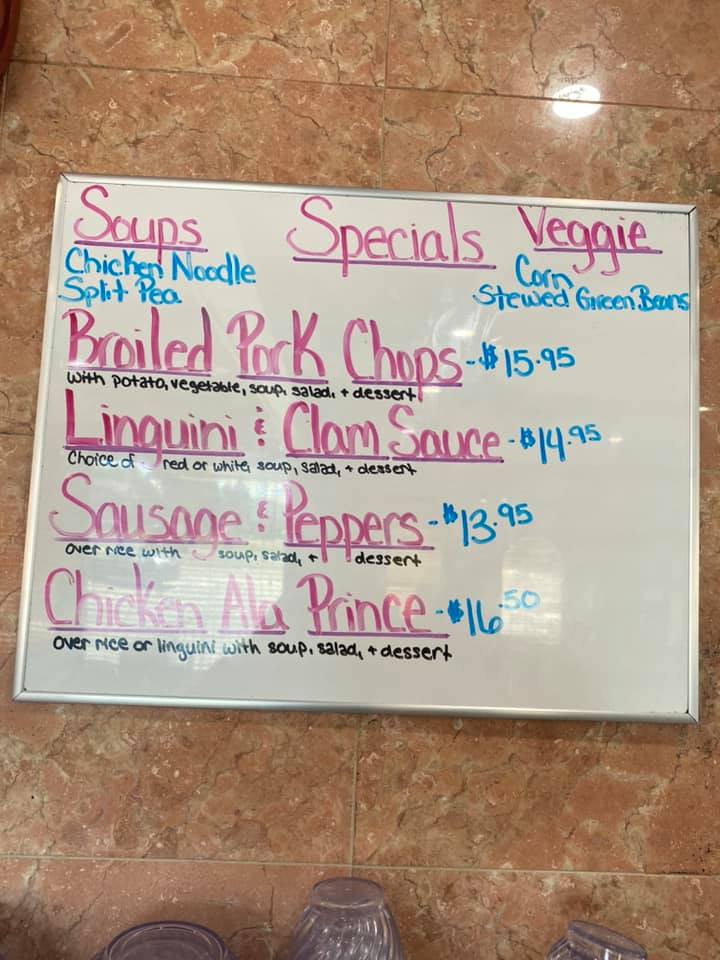 Soups Specials Veggie
Chicken Noodle
Split Pea
Corn
Stewed Green Beans
Broiled Pork Chops - $15.95
with potato, vegetable, soup, salad, + dessert
Linguini & Clam Sauce - $14.95
Choice of red or white, soup, salad, + dessert
Sausage & Peppers - $13.95
over rice with soup, salad, + dessert
Chicken Ala Prince - $16.50
over rice or linguini with soup, salad, + dessert